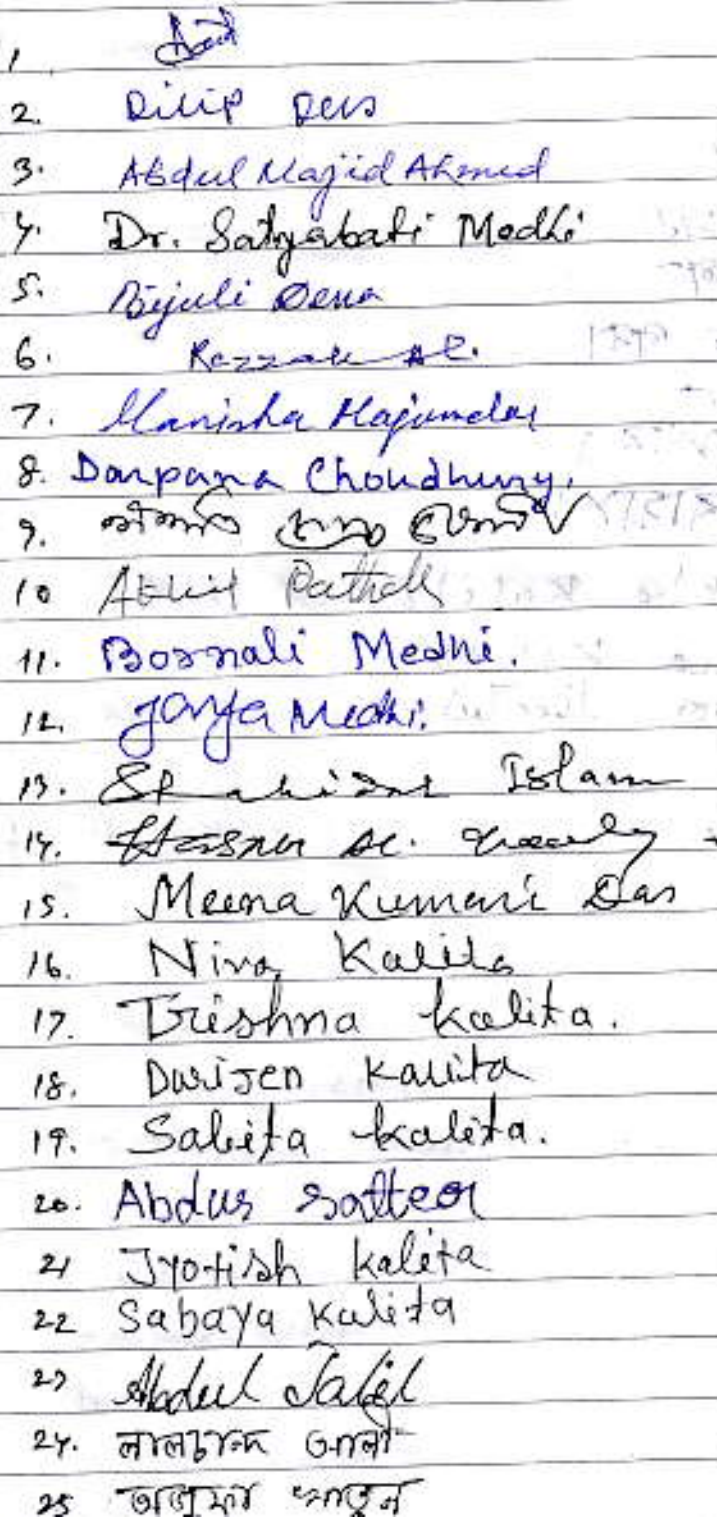 1.
2. Dilip Das
3. Abdul Majid Ahmed
4. Dr. Satyabati Medhi
5. Bijuli Deka
6. Razzak Al.
7. Manisha Majumdar
8. Darpana Choudhury.
9.
10 Akhil Pathak
11. Bornali Medhi.
12. Jonya Medhi.
13. Shahidul Islam
14. Hasen Al.
15. Meena Kumari Das
16. Niva Kalita
17. Trishna kalita.
18. Dwijen Kalita
19. Sabita kalita.
20. Abdus Satter
21 Jyotish Kalita
22 Sabaya Kalita
23 Abdul Jalil
24. লালচান্দ আলী
25 খাতুন